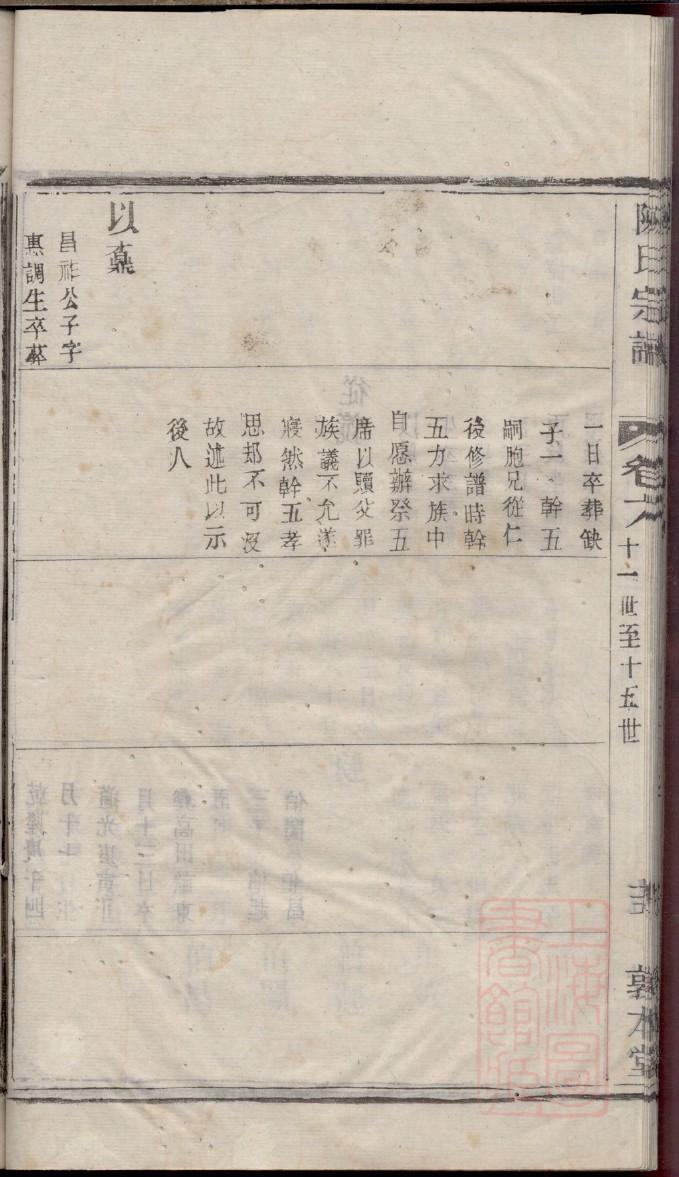 陳氏宗譜
卷六
十一世至十五世
敦本堂
以鼒
昌祚公子字
惠調生卒葬
一日卒葬缺
子一幹五
嗣胞兄從仁
後修譜時幹
五力求族中
自愿辦祭五
席以贖父罪
族議不允遂
寢然幹五孝
思却不可沒
故述此以示
後人
上海圖
書館藏